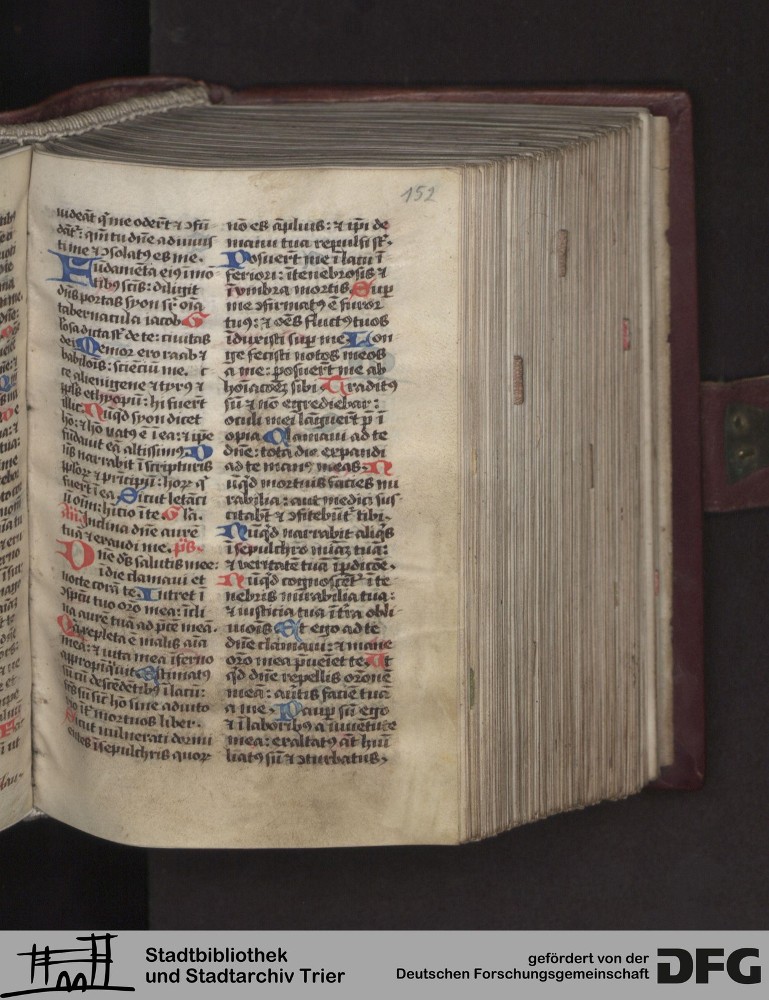 152
uideāt q̄ me oderūt ⁊ ↄfū
dāt᷒: qm̄ tu dn̄e adiuuis
ti me ⁊ ↄsolatꝰ es me.
Fūdamēta eiꝰ ī mo
tibꝰ scīs: diligit
dn̄s portas syon sr̄ oīa
tabernacula iacob G
losa dicta st̄ de te: ciuitas
dei Memor ero raab ⁊
babilōis: scienciū me.
te alienigene ⁊ tyrꝰ ⁊
ppl̄s ethyopū: hi fuerūt
illic. Nūqd syon dicet
hō: ⁊ hō natꝰ ē ī ea: ⁊ ipe
fūdauit eā altissimꝰ D
n̄s narrabit ī scripturis
pploꝝ ⁊ pricipū: hoꝝ q̄
fuerūt ī ea. Sicut letāci
ū oīm: hītacio ī te Gl̄a.
Inclina dn̄e aurē
tuā ⁊ exaudi me. p̄s.
Dn̄e ds̄ salutis mee:
ī die clamaui et
nocte corā te. Intret ī
ↄspcū tuo oro mea: īcli
na aurē tuā ad p̄cē meā.
Qa repleta ē malis aīa
mea: ⁊ uita mea īferno
appropīquit Estimatꝰ
sū cū descēdētibꝰ ī lacū:
fcs̄ sū sic̄ hō sine adiuto
rio īt̄ mortuos liber.
Sicut uulnerati dormi
entes ī sepulchris quoꝝ
nō es āplius: ⁊ ip̄i de
manu tua repulsi st̄.
Posuerūt me ī lacu ī
feriori: ī tenebrosis ⁊
ī vmbra mortis. Sup
me ↄfirmatꝰ ē furor
tuꝰ: ⁊ oēs fluctꝰ tuos
īduxisti sup me Lon
ge fecisti notos meos
a me: posuerūt me ab
hoīacōēz sibi Traditꝰ
sū ⁊ nō egrediebar:
oculi mei lāguerūt p̄ ī
opia Clamaui ad te
dn̄e: tota die expandi
ad te manꝰ meas N
ūqd mortuis facies mi
rabilia: aut medici sus
citabūt ⁊ ↄfitebūt᷒ tibi.
Nūqd narrabit aliqs
ī sepulchro mīaz tuā:
⁊ veritatē tuā ī pdicōe.
Nūqd cognoscēt᷒ ī te
nebris mirabilia tua:
⁊ iusticia tua ī t̄ra obli
uiōis Et ego ad te
dn̄e clamaui: ⁊ mane
oro mea pueniet te. Ut
qd dn̄e repellis oroēm
meā: auertis faciē tuā
a me. Paup sū ego
⁊ ī laboribꝰ a iuuētute
mea: exaltatꝰ āt hūi
liatꝰ sū ⁊ ↄturbatus.
Stadtbibliothek
und Stadtarchiv Trier
gefördert von der
Deutschen Forschungsgemeinschaft
DFG